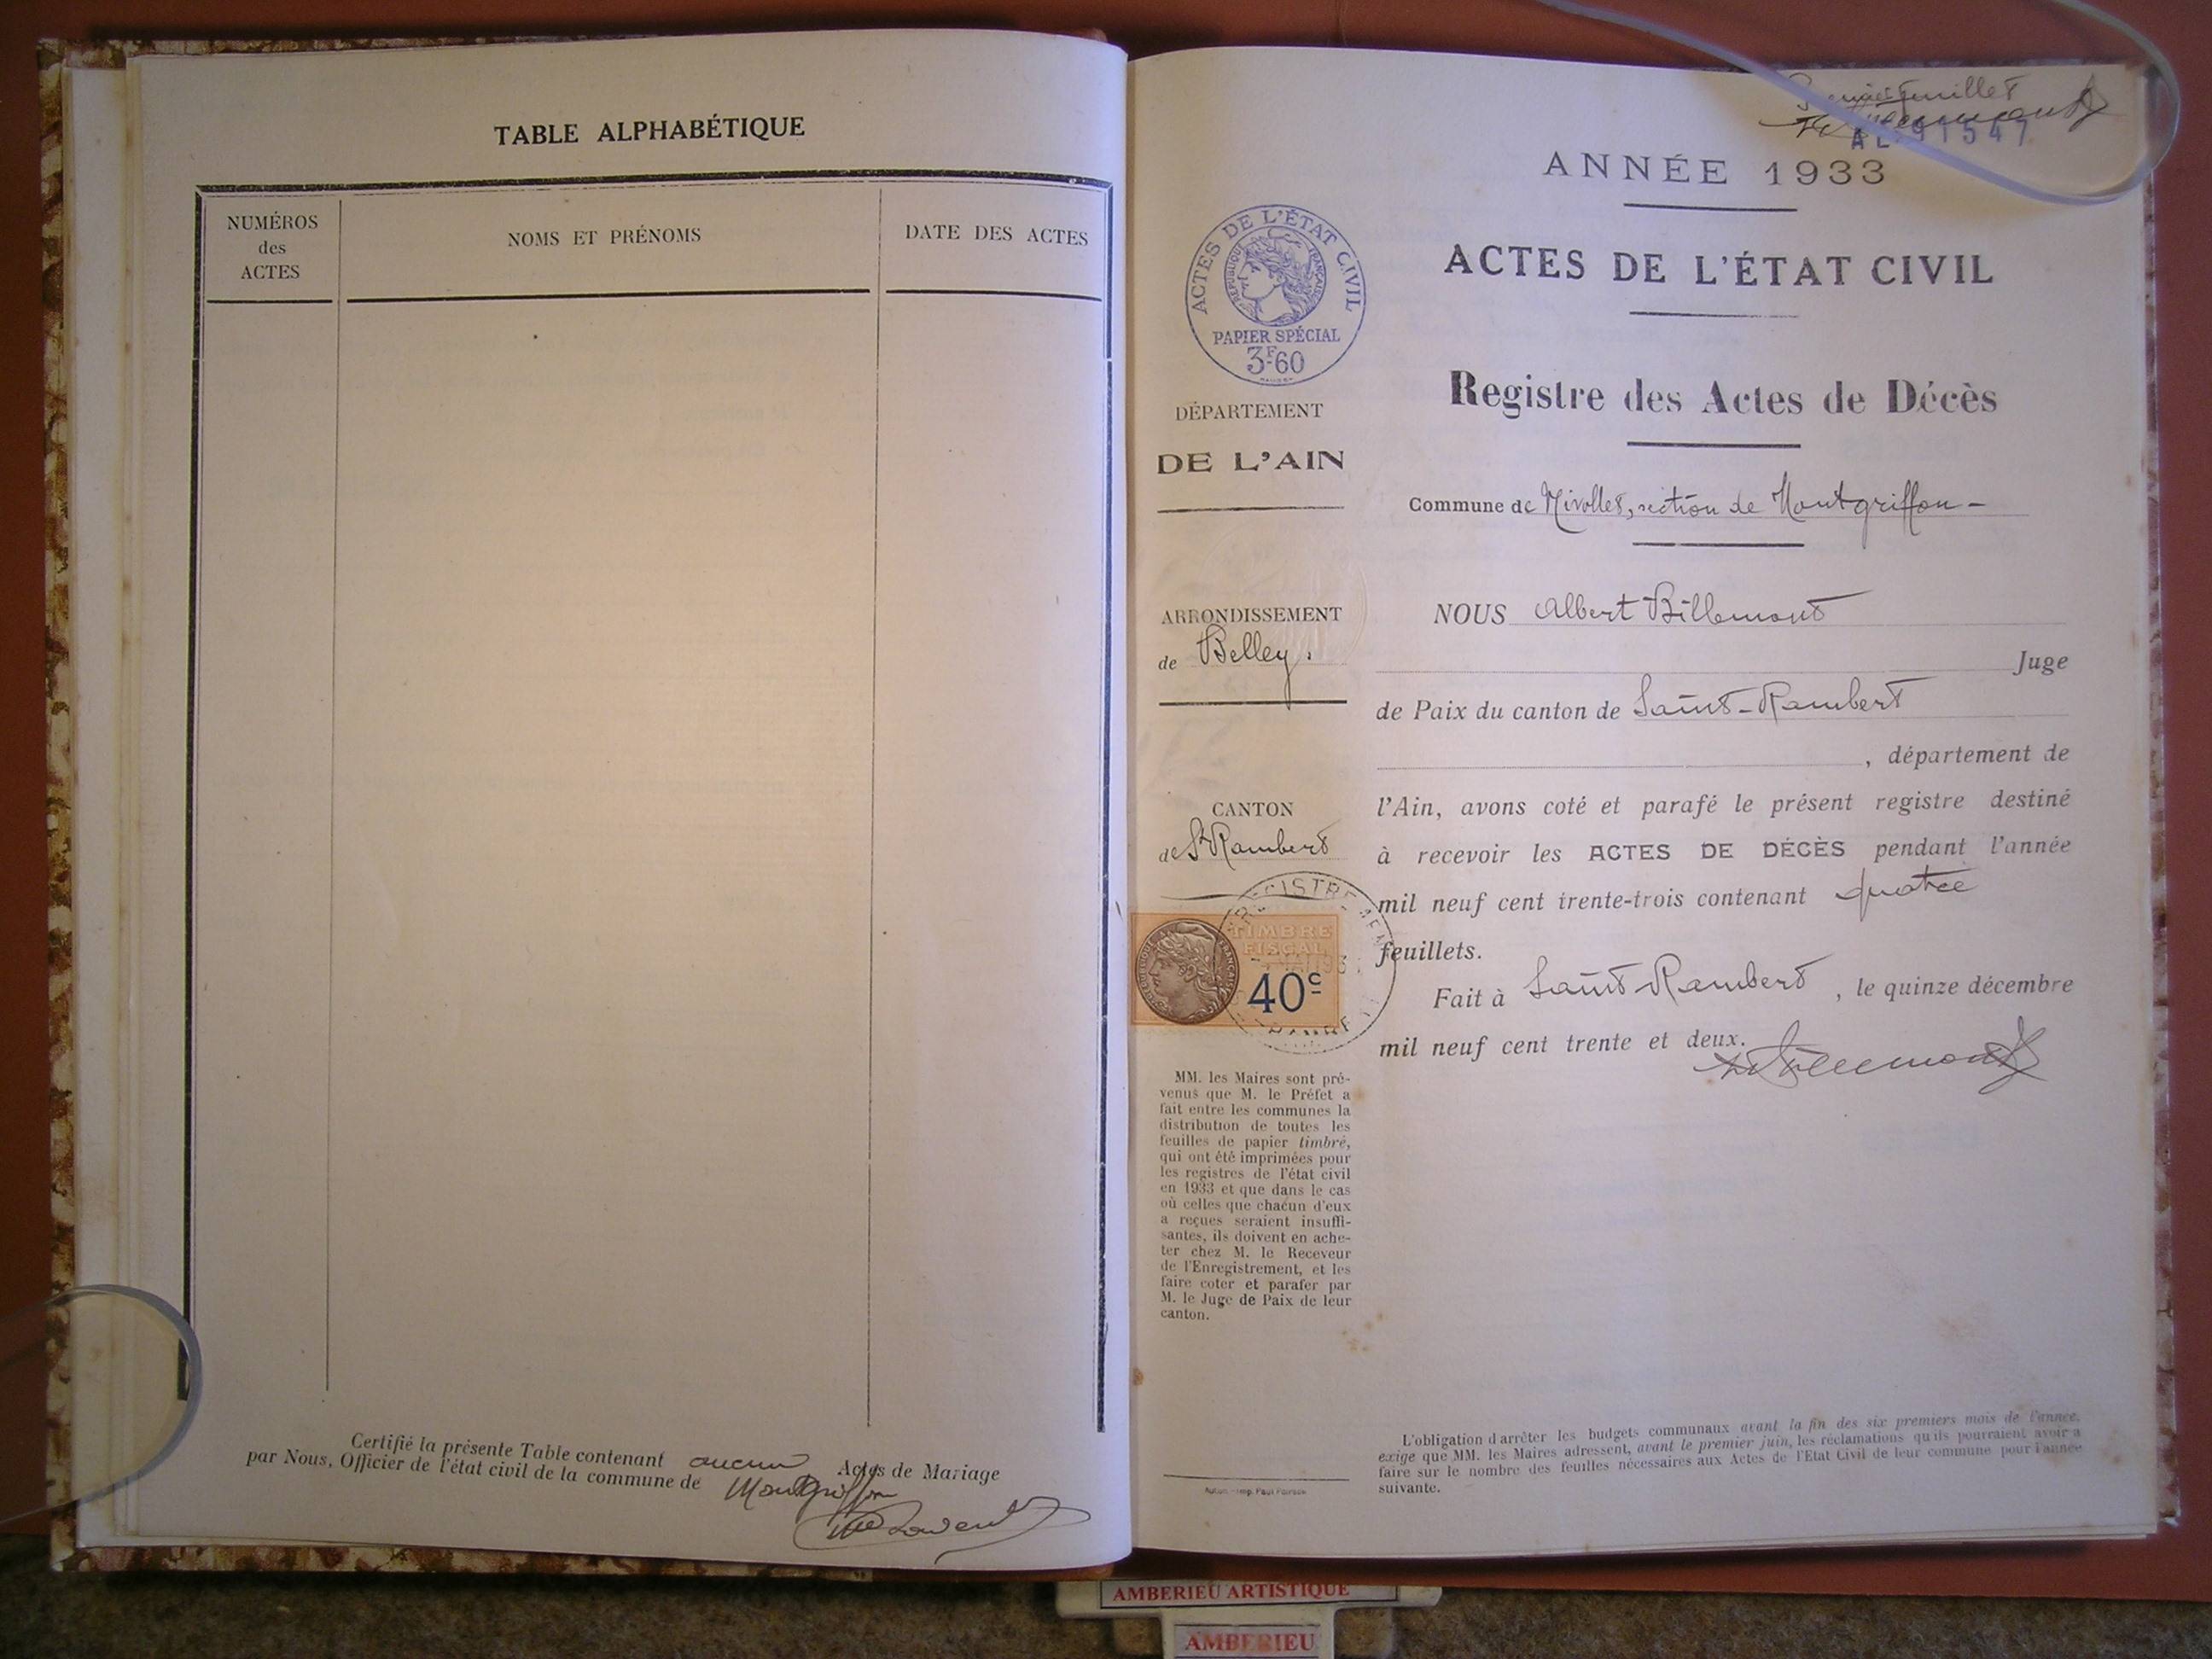 TABLE ALPHABÉTIQUE
NUMÉROS
des
ACTES
NOMS ET PRÉNOMS
DATE DES ACTES
Certifié la présente Table contenant aucun Actes de Mariage
par Nous, Officier de l'état civil de la commune de Montgriffon
Premier feuillet
AL 91547
ANNÉE 1933
ACTES DE L'ÉTAT CIVIL
Registre des Actes de Décès
Commune de Nivollet, section de Montgriffon -
ACTES DE L'ÉTAT CIVIL
RÉPUBLIQUE FRANÇAISE
PAPIER SPÉCIAL
3F60
DÉPARTEMENT
DE L'AIN
ARRONDISSEMENT
de Belley.
CANTON
de St Rambert
TIMBRE
FISCAL
40c
MM. les Maires sont pré-
venus que M. le Préfet a
fait entre les communes la
distribution de toutes les
feuilles de papier timbré,
qui ont été imprimées pour
les registres de l'état civil
en 1933 et que dans le cas
où celles que chacun d'eux
a reçues seraient insuffi-
santes, ils doivent en ache-
ter chez M. le Receveur
de l'Enregistrement, et les
faire coter et parafer par
M. le Juge de Paix de leur
canton.
Autun. - Imp. Paul Poirson
NOUS Albert Billemont
Juge
de Paix du canton de Saint-Rambert
, département de
l'Ain, avons coté et parafé le présent registre destiné
à recevoir les ACTES DE DÉCÈS pendant l'année
mil neuf cent trente-trois contenant quatre
feuillets.
Fait à Saint-Rambert, le quinze décembre
mil neuf cent trente et deux.
L'obligation d'arrêter les budgets communaux avant la fin des six premiers mois de l'année,
exige que MM. les Maires adressent, avant le premier juin, les réclamations qu'ils pourraient avoir à
faire sur le nombre des feuilles nécessaires aux Actes de l'Etat Civil de leur commune pour l'année
suivante.
AMBERIEU ARTISTIQUE
AMBERIEU